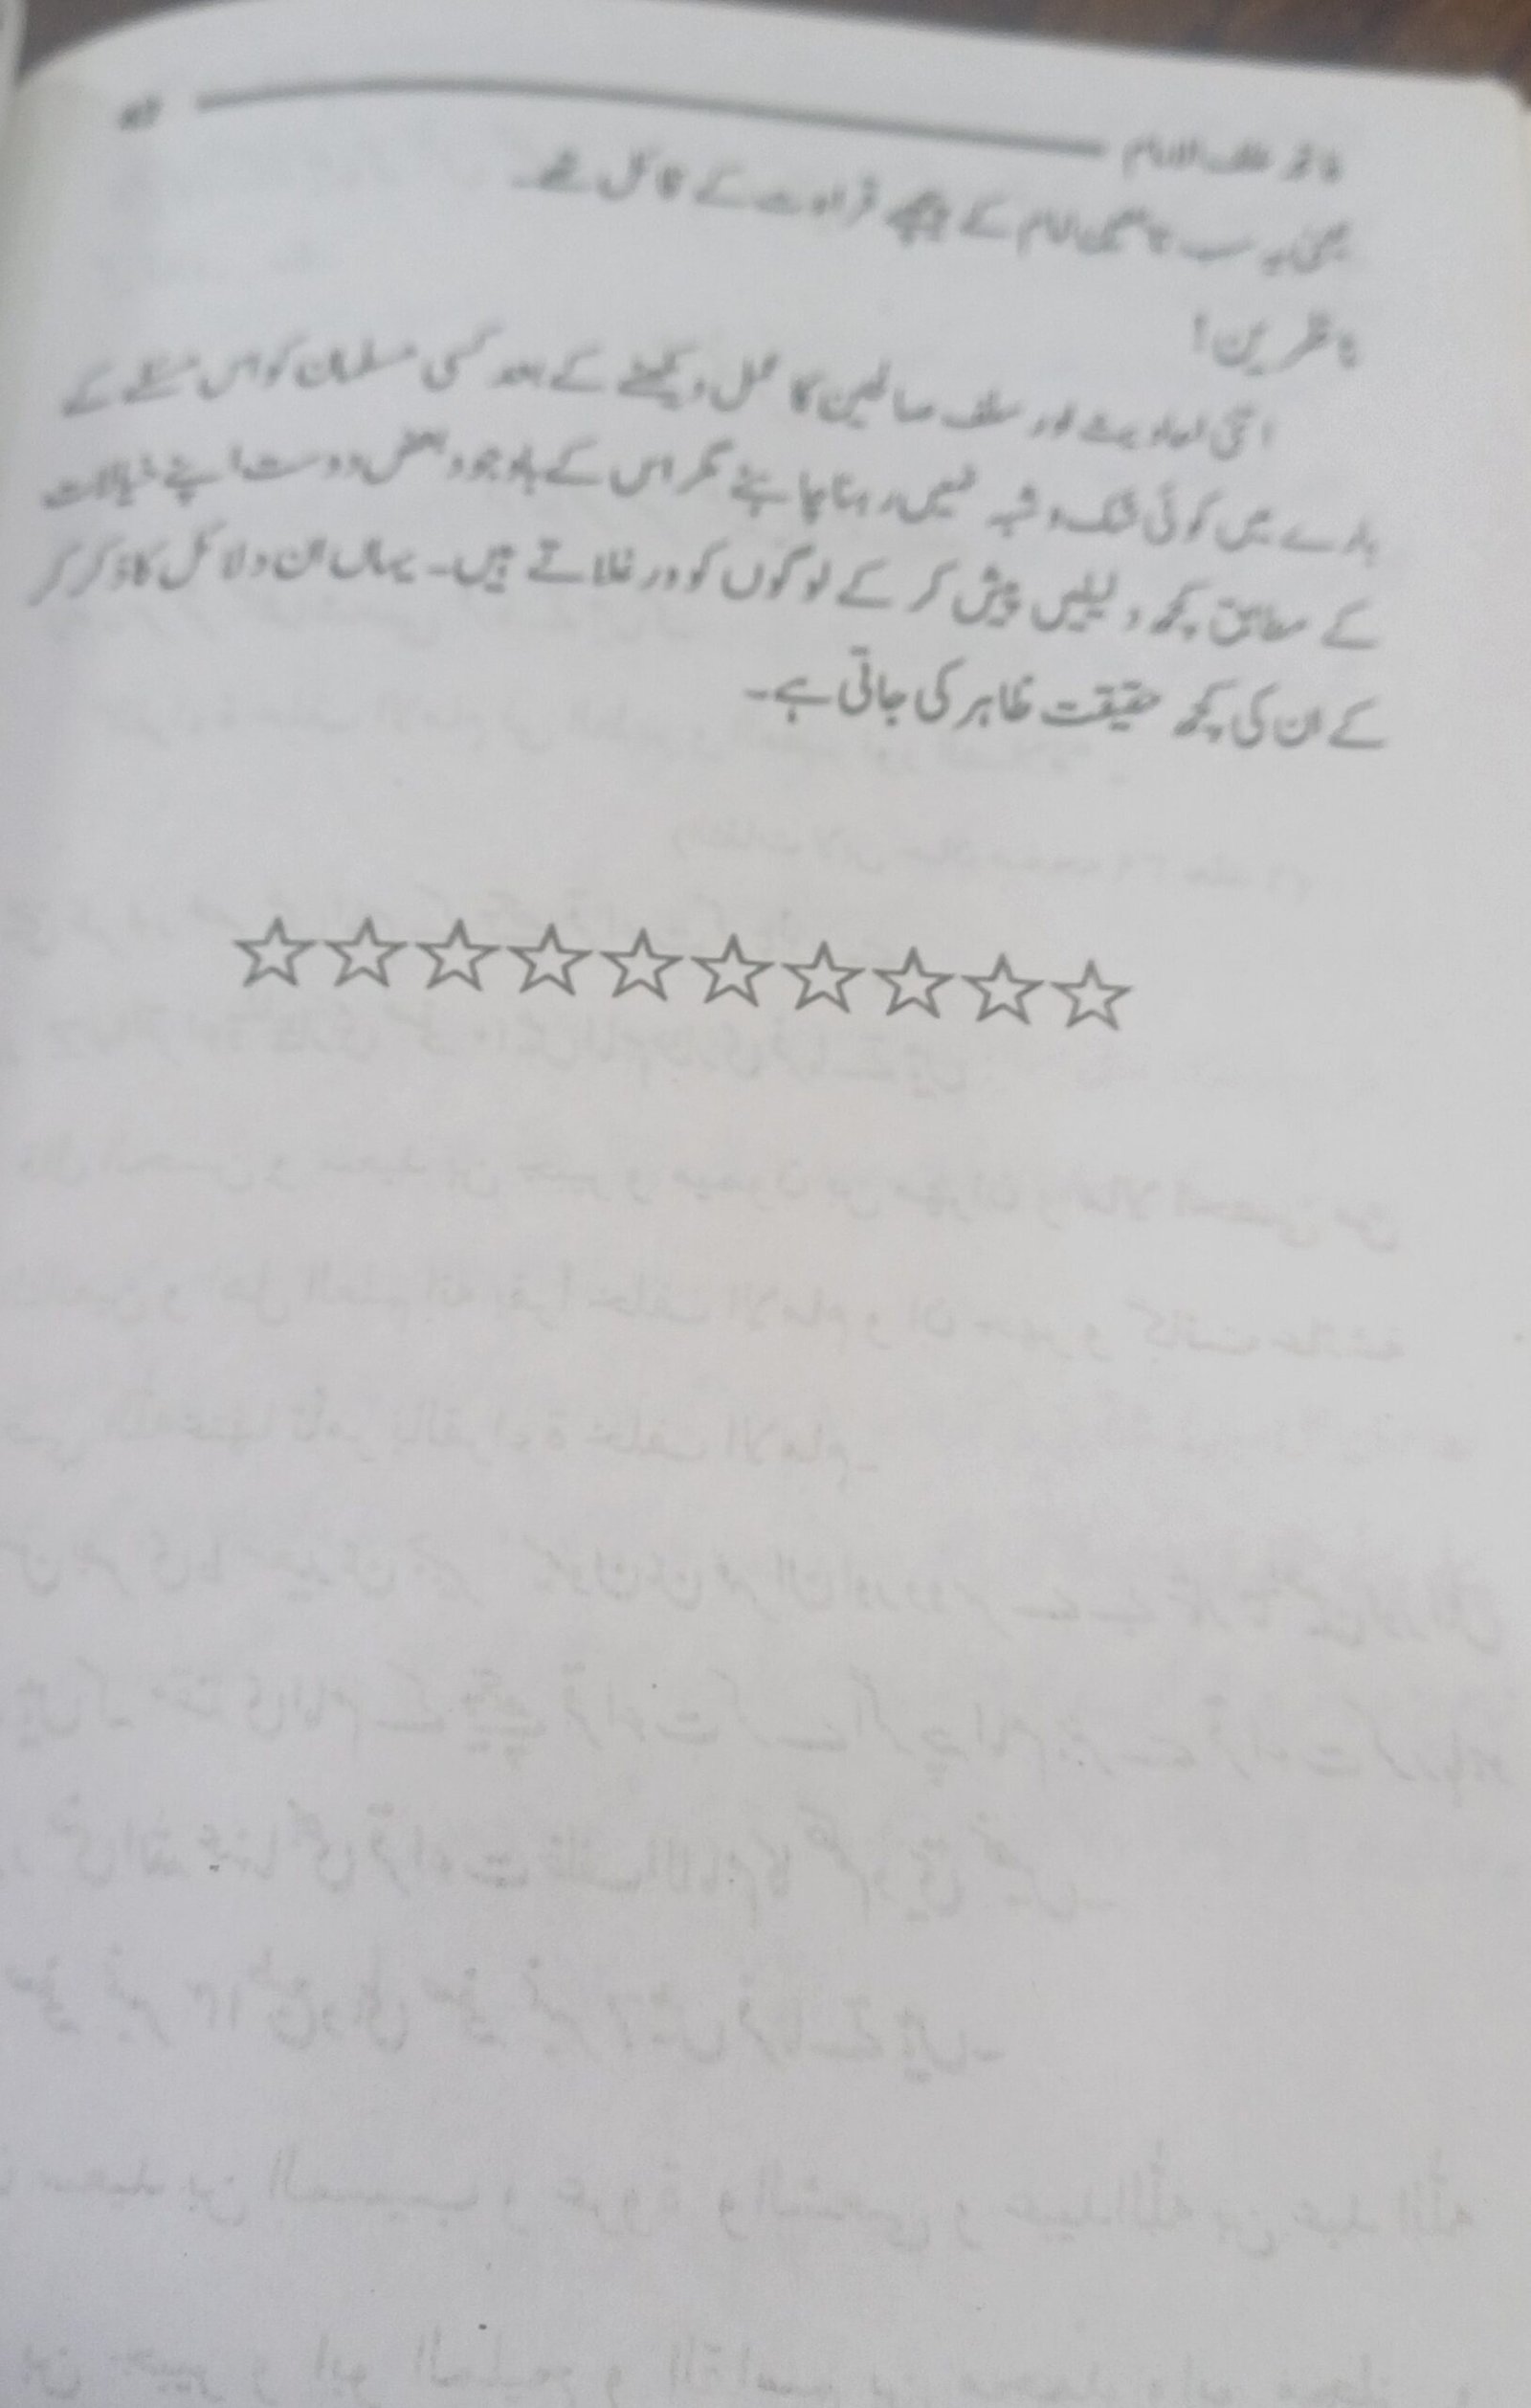 فاتحہ خلف الامام
یعنی یہ سب تابعین امام کے پیچھے قراءت کے قائل تھے۔
ناظرین!
اتنی احادیث اور سلف صالحین کا عمل دیکھنے کے بعد کسی مسلمان کو اس مسئلے کے
بارے میں کوئی شک و شبہ نہیں رہنا چاہئے مگر اس کے باوجود بعض دوست اپنے خیالات
کے مطابق کچھ دلیلیں پیش کر کے لوگوں کو ورغلاتے ہیں۔ یہاں ان دلائل کا ذکر کر
کے ان کی کچھ حقیقت ظاہر کی جاتی ہے۔
☆☆☆☆☆☆☆☆☆☆